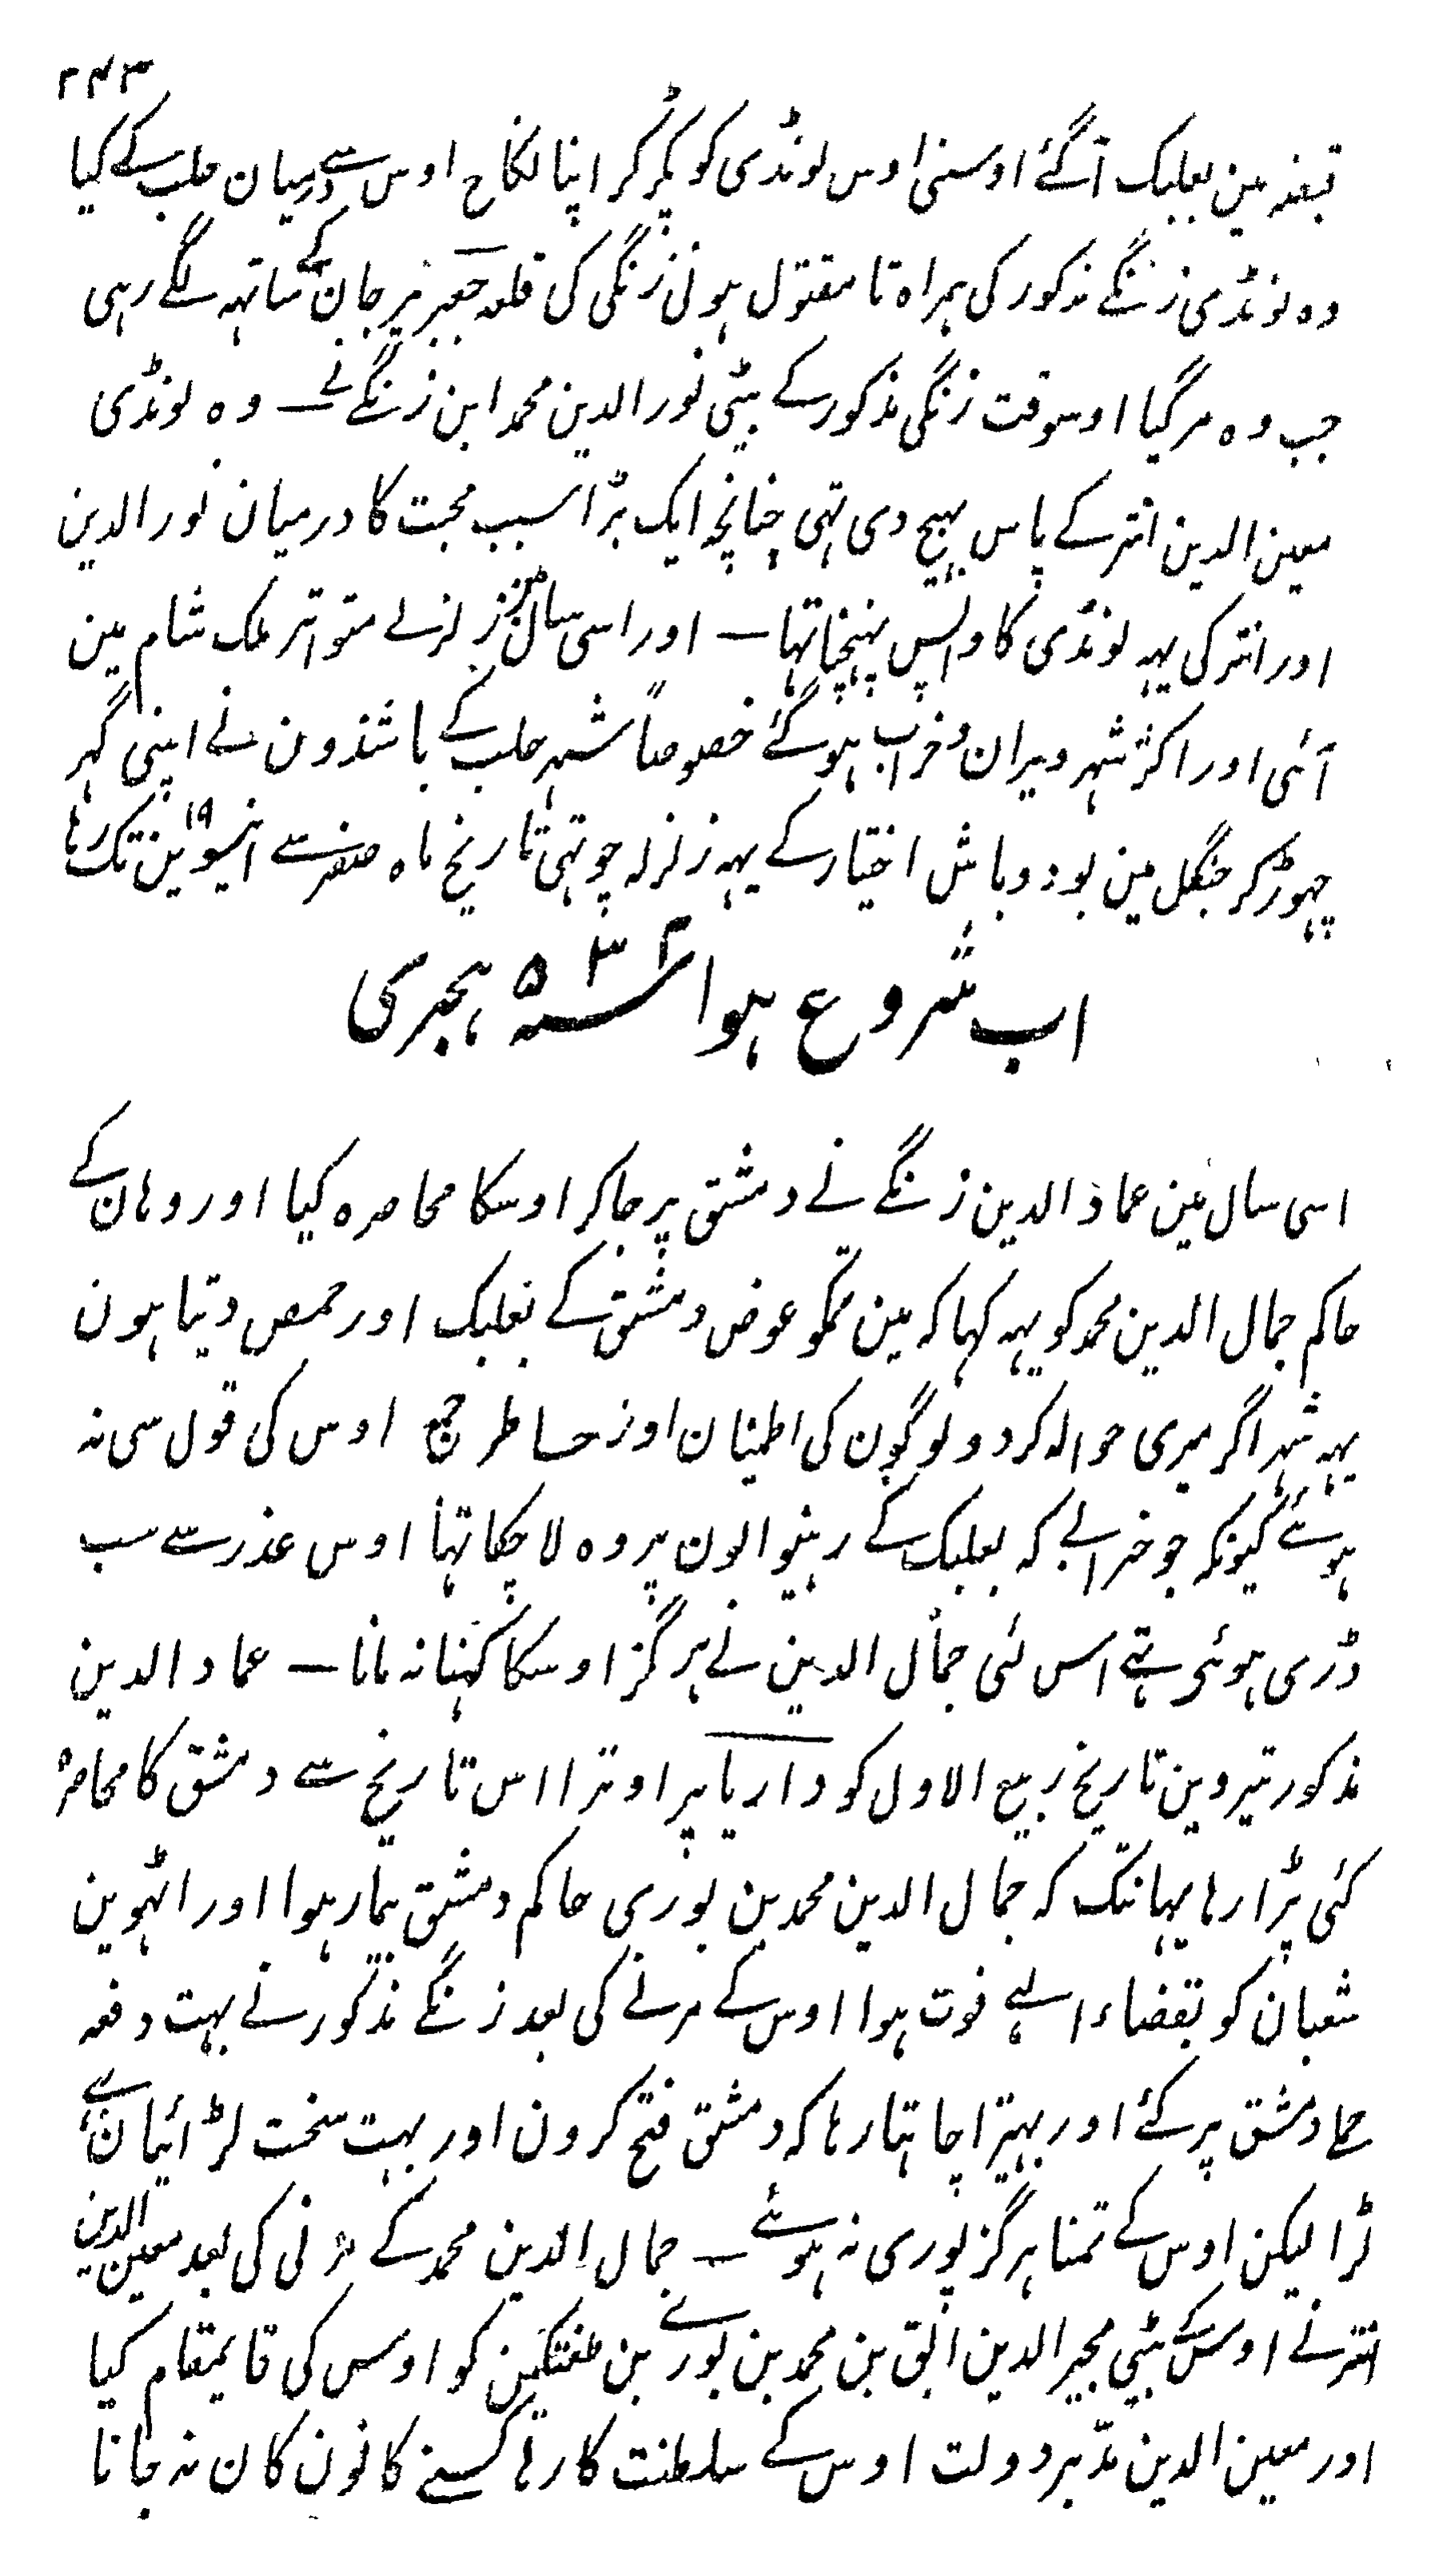 ۲۴۳
قبضہ مین بعلبک آگئے اوسنی اوس لونڈی کو پکڑ کر اپنا نکاح اوس سے درمیان حلب کے کیا
وہ لونڈی زنگے مذکور کی ہمراہ تا مقتول ہونی زنگی کی قلعہ جعبر پر جان کے ساتہہ لگے رہی
جب وہ مر گیا اوسوقت زنگی مذکور کے بیٹی نور الدین محمد ابن زنگے نے — وہ لونڈی
معین الدین انتر کے پاس بہیج دی تہی چنانچہ ایک بڑا سبب محبت کا درمیان نور الدین
اور انتر کی یہہ لونڈی کا واپس پہنچنا تہا — اور اسی سال مین زلزلے متواتر ملک شام مین
آئی اور اکثر شہر ویران و خراب ہو گئے خصوصاً شہر حلب کے باشندون نے اپنی گہر
چہوڑ کر جنگل مین بود و باش اختیار کے یہہ زلزلہ چوتہی تاریخ ماہ صفر سے انیسوین ۱۹ تک رہا
اب شروع ہوا سنہ ۵۳۴ ہجری
اسی سال مین عماد الدین زنگے نے دمشق پر جاکر اوسکا محاصرہ کیا اور وہان کے
حاکم جمال الدین محمد کو یہہ کہا کہ مین تمکو عوض دمشق کے بعلبک اور حمص دیتا ہون
یہہ شہر اگر میری حوالہ کر دو لوگون کی اطمینان اور خاطر جمع اوس کی قول سی نہ
ہوئے کیونکہ جو خرابے کہ بعلبک کے رہنیوالون پر وہ لا چکا تہا اوس عذر سے سب
ڈری ہوئی تہے اس لئی جمال الدین نے ہرگز اوسکا کہنا نہ مانا — عماد الدین
مذکور تیروین تاریخ ربیع الاول کو داریا پر اوترا اس تاریخ سے دمشق کا محاصرہ
کئی پڑا رہا یہانتک کہ جمال الدین محمد بن بوری حاکم دمشق بیمار ہوا اور اٹہوین
شعبان کو بقضاء الہے فوت ہوا اوس کے مرنے کی بعد زنگے مذکور نے بہت دفعہ
حملہ دمشق پر کئے اور بہتیرا چاہتا رہا کہ دمشق فتح کرون اور بہت سخت لڑائیان بہے
لڑا لیکن اوس کے تمنا ہرگز پوری نہ ہوئے — جمال الدین محمد کے مرنی کی بعد معین الدین
انتر نے اوس کے بیٹی مجیر الدین ابق بن محمد بن بورے بن طغتکین کو اوس کی قایمقام کیا
اور معین الدین مدّبر دولت اوس کے سلطنت کا رہا کسینے کانون کان نہ جانا